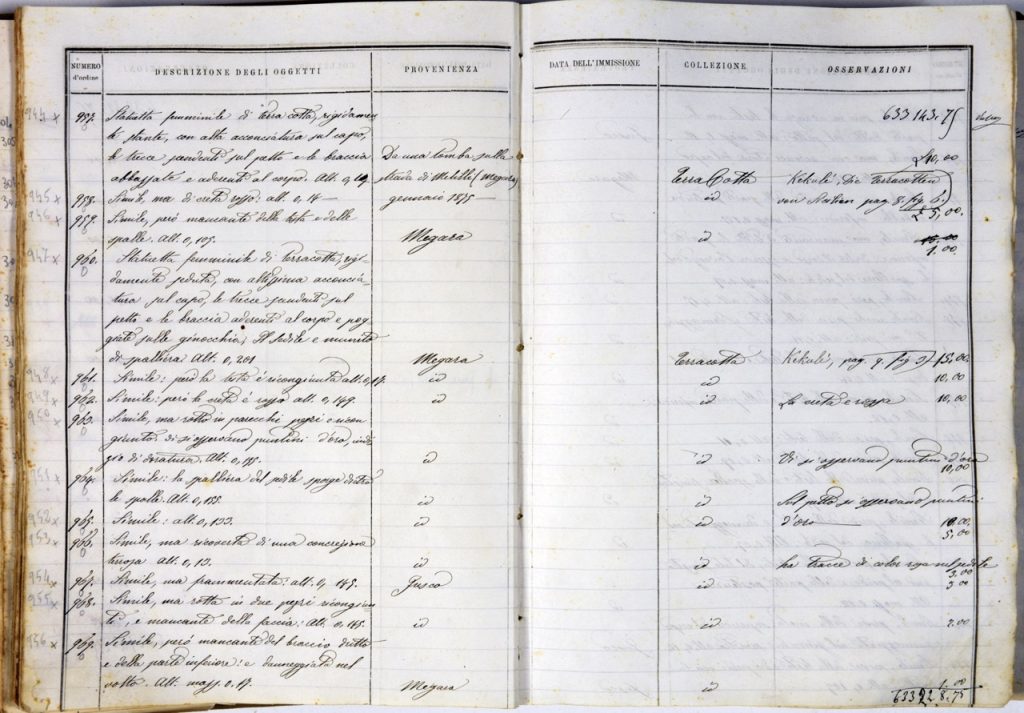 NUMERO d'ordine
DESCRIZIONE DEGLI OGGETTI
PROVENIENZA
DATA DELL'IMMISSIONE
COLLEZIONE
OSSERVAZIONI
633 143.75
944 x
957. Statuetta femminile di terra cotta, rigidamen
te stante, con alta acconciatura sul capo,
le trecce pendenti sul petto e le braccia
abbassate e aderenti al corpo. Alt. 0,19
Da una tomba sulla
strada di Melilli (Megara)
gennaio 1875
Terra Cotta
Kekulé, Die Terracotten
von Sicilien pag. 8. fig. 6.
£ 10,00
945 x
958. Simile, ma di creta rossa: alt. 0,14
id
£ 5,00.
946 x
959. Simile, però mancante della testa e delle
spalle. Alt. 0,105.
Megara
id
10.00
1.00
947 x
960. Statuetta femminile di Terracotta, rigi
damente seduta, con altissima acconcia-
tura sul capo, le trecce pendenti sul
petto e le braccia aderenti al corpo e pog
giate sulle ginocchia; Il sedile e munito
di spalliera Alt. 0,201
Megara
Terracotta
Kekulé, pag. 9. fig. 9)
15.00
948 x
961. Simile: però la testa é ricongiunta alt. 0,17.
id
id
10,00
949 x
962. Simile: però la creta é rossa alt. 0,149.
id
id
La creta e rossa
10,00
950 x
963. Simile, ma rotta in parecchi pezzi e ricon
giunta. di si osservano puntini d'oro, indi
zio di doratura. Alt. 0,175.
id
id
Vi si osservano puntini d'oro
10,00
951 x
964. Simile: la spalliera del sedile sporge dietro
le spalle. Alt. 0,155.
id
id
Sul petto si osservano puntini
d'oro
952 x
965. Simile: alt. 0,133.
id
id
10.00
5.00
953 x
966. Simile, ma ricoverta di una concrezione
terrosa alt. 0,13.
id
id
ha tracce di color rosa nel sedile
3.00
954 x
967. Simile, ma frammentata: alt. 0,145.
Gusco
id
3 00
955 x
968. Simile, ma rotta in due pezzi ricongiun
ti, e mancante della faccia: Alt. 0,145.
id
id
2.00
956 x
969. Simile, però mancante del braccio dritto
e della parte inferiore: e danneggiata nel
volto. Alt. mass. 0,17.
Megara
id
1.00
633 22 8.75